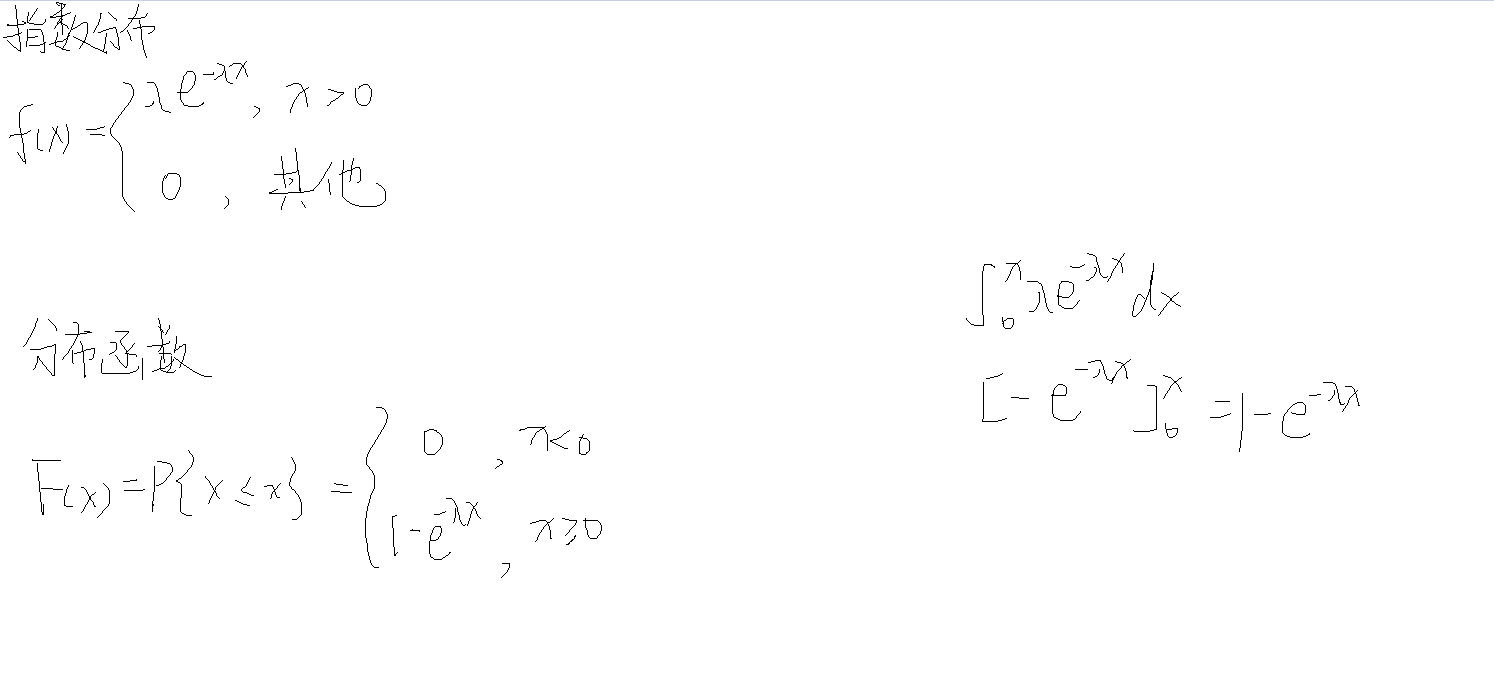 指数分布
f(x) = { λe^{-λx}, x > 0
0, 其他
分布函数
F(x) = P{X ≤ x} = { 0, x < 0
1 - e^{-λx}, x ≥ 0
∫_0^x λe^{-λx} dx
[-e^{-λx}]_0^x = 1 - e^{-λx}